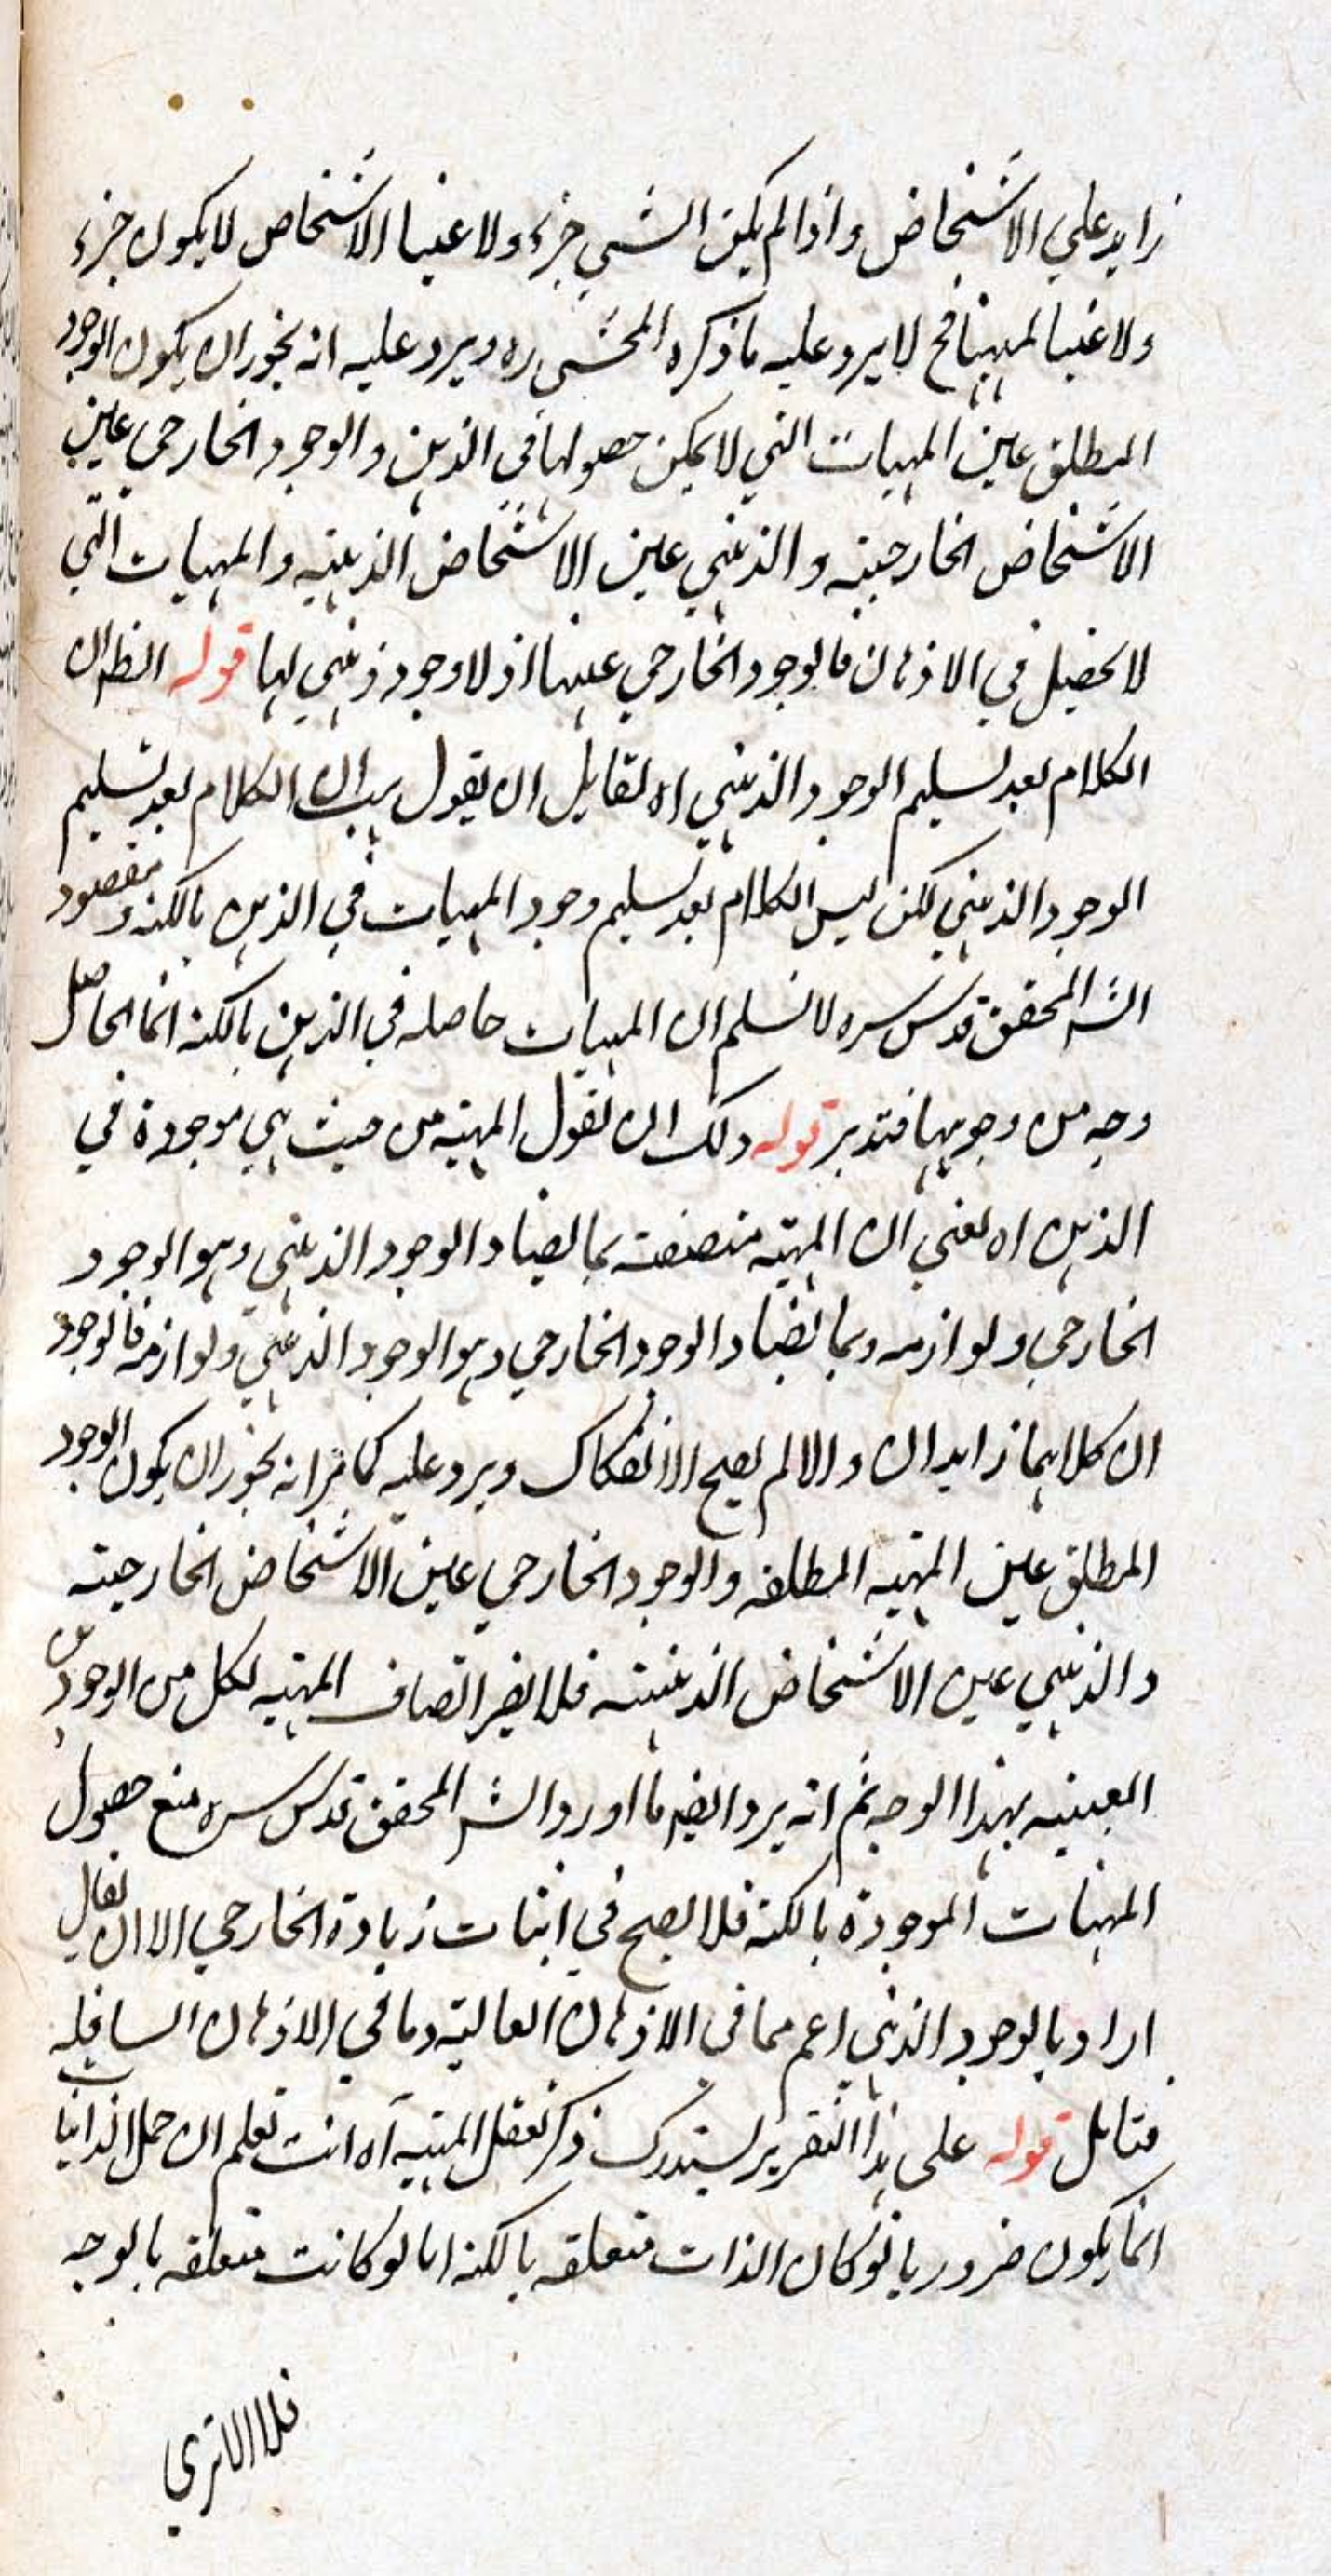 زايد علي الاشخاص واذا لم يكن الشي جزء ولا عينا الاشخاص لا يكون جزء
ولا عينا لمهيتا فح لا يرد عليه ما ذكره المحشي ره ويرد عليه انه يجوز ان يكون الوجود
المطلق عين المهيات التي لا يمكن حصولها في الذهن والوجود الخارجي عين
الاشخاص الخارجيته والذهني عين الاشخاص الذهنيه والمهيات التي
لا تحصيل في الاذهان فالوجود الخارجي عينها اذ لا وجود ذهني لها قوله الظ ان
الكلام بعد تسليم الوجود الذهني اه لقايل ان يقول هب ان الكلام بعد تسليم
الوجود الذهني لكن ليس الكلام بعد تسليم وجود المهيات في الذهن بالكنه ومقصود
الشه المحقق قدس سره لا نسلم ان المهيات حاصله في الذهن بالكنه انما الحاصل
وجه من وجوهها فتدبر قوله ولك ان تقول المهيته من حيث هي موجودة في
الذهن اه يعني ان المهيته متصفته بما يضاد الوجود الذهني وهو الوجود
الخارجي ولوازمه وبما يضاد الوجود الخارجي وهو الوجود الذهني ولوازمه فالوجود
ان كلاهما زايدان والا لم يصح الانفكاك ويرد عليه كما مر انه يجوز ان يكون الوجود
المطلق عين المهيه المطلقه والوجود الخارجي عين الاشخاص الخارجيته
والذهني عين الاشخاص الذهنيته فلا يضر اتصاف المهيه لكل من الوجودين
العينيه بهذا الوجه ثم انه يرد ايضه ما اورد الشه المحقق قدس سره منع حصول
المهيات الموجودة بالكنه فلا يصح في اثبات زيادة الخارجي الا ان يقال
اراد بالوجود الذهني اعم مما في الاذهان العالية وما في الاذهان السافله
فتامل قوله علي هذا التقرير يستدرك ذكر تعقل المهيه آه انت تعلم ان حمل الذاتيات
انما يكون ضروريا لو كان الذات متعلقه بالكنه اما لو كانت متعلقه بالوجه
فلا الا تري